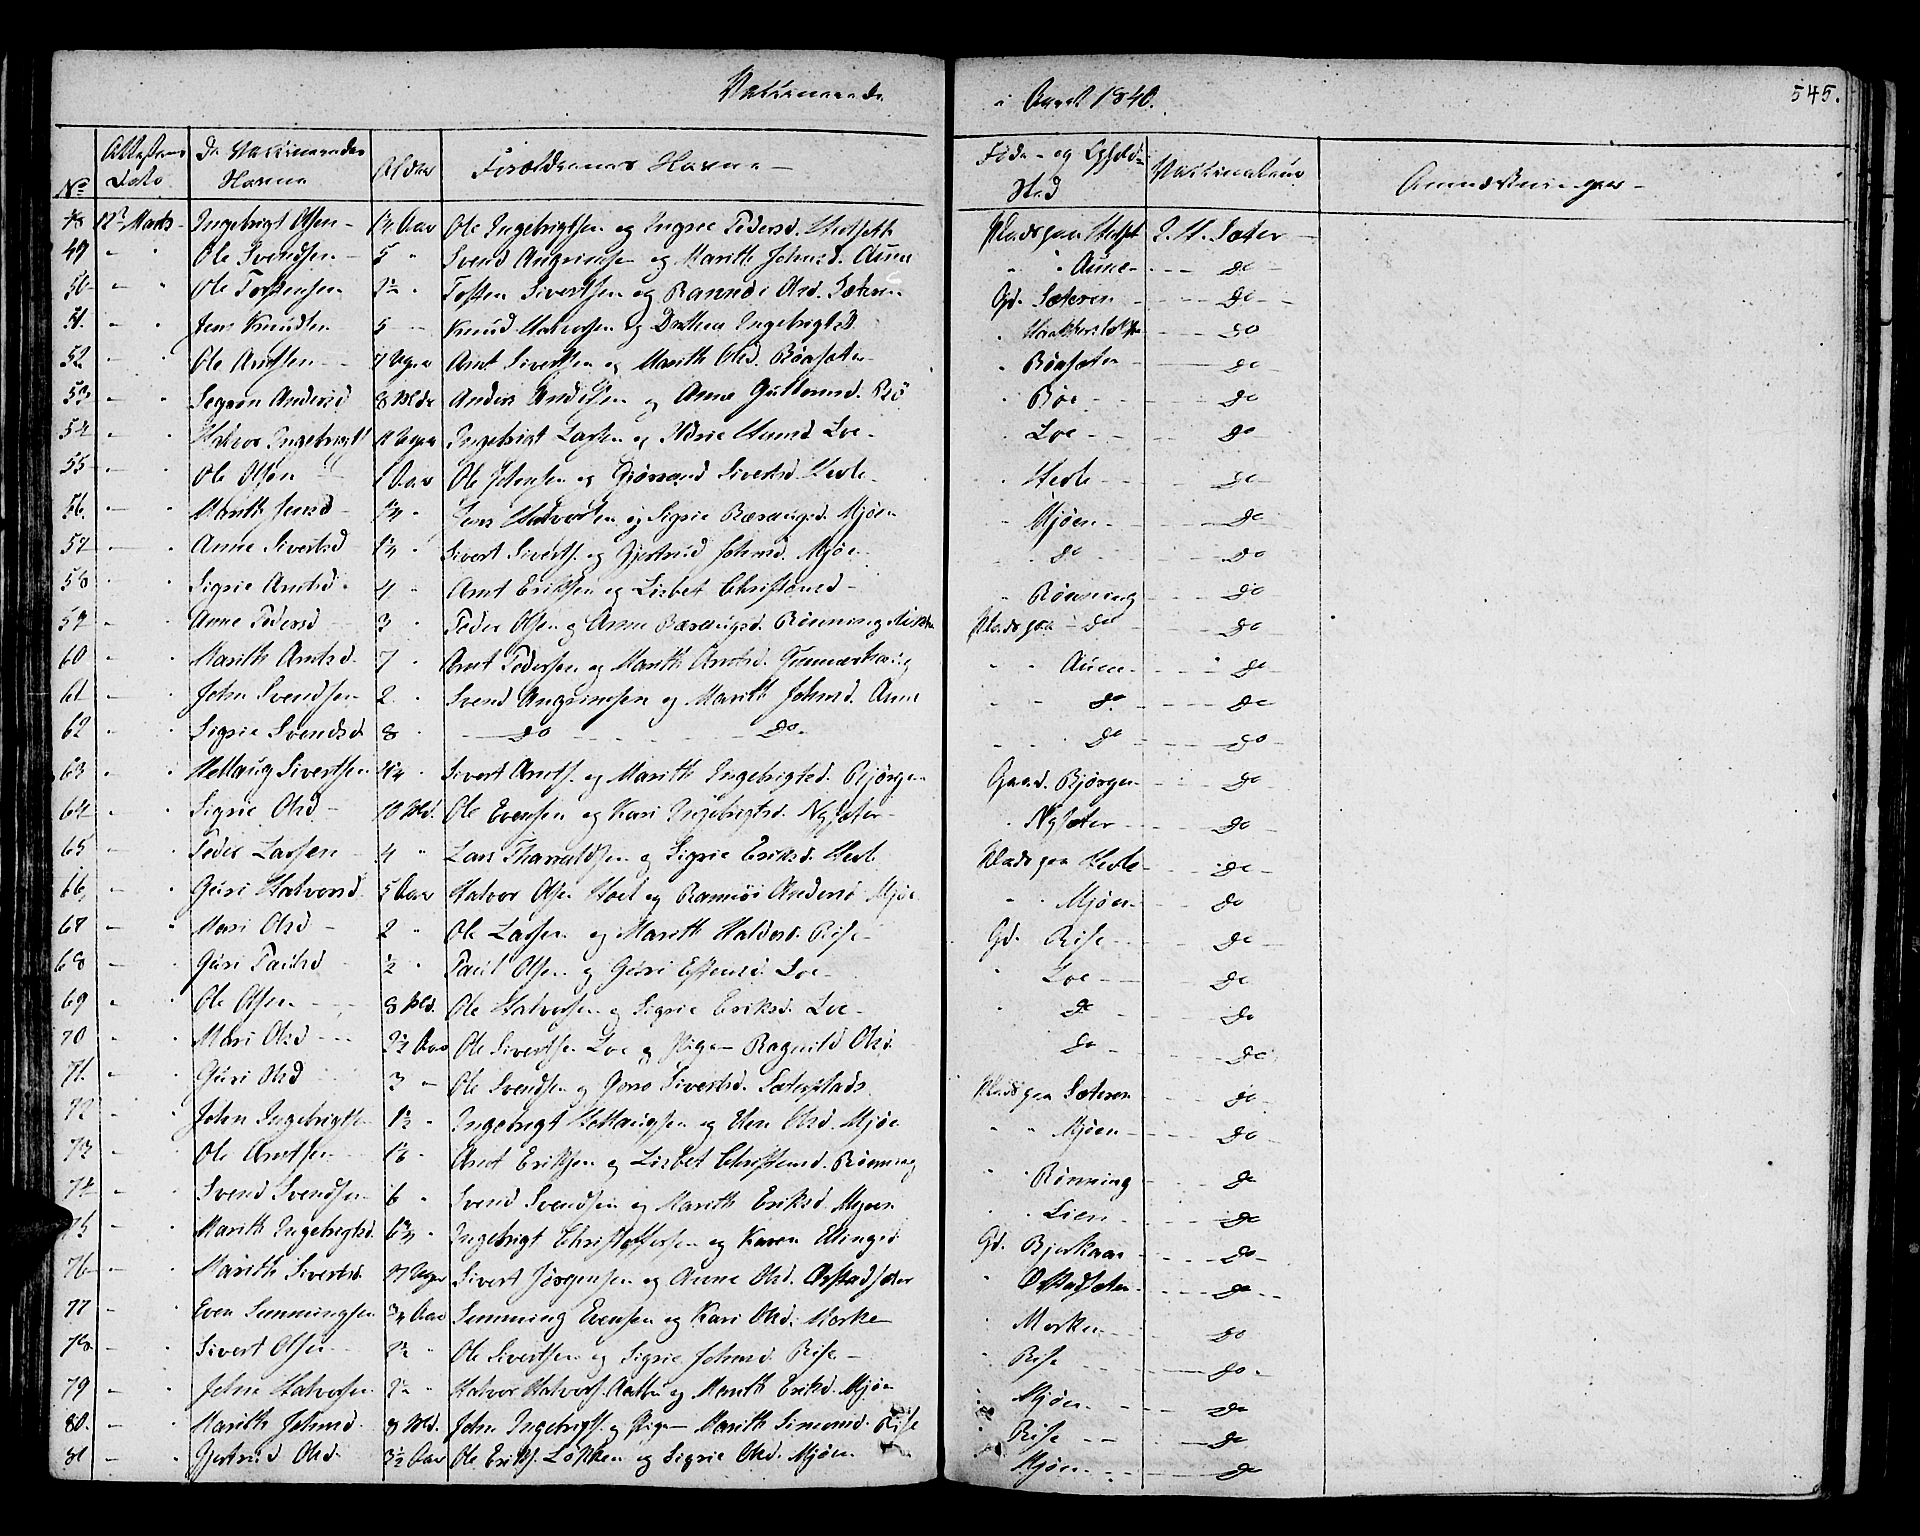 Vaccinerede i Aaret 1840. 545.
No Attestens Dato De Vaccineredes Navne Alder Forældrenes Navne Føde- og Opholds Sted Vaccinateur Anmærkninger
48 12 Marts Ingebrigt Olsen 1 1/4 Aar Ole Ingebrigtsen og Ingrie Pedersd. Pladspaa S. H. Sæter
49 " " Ole Svendsen 5 " Svend Angrimsen og Marith Johnsd. Aune " " Aune do
50 " " Ole Torstensen Torsten Sivertsen og Rannei Olsd. Sæteren Gd. Sæteren do
51. " " Jens Knudsen 5 Knud Halvorsen og Ingebrigtsd. do
52. " " Ole Arntsen 7 Uger Arnt Sivertsen og Marith Olsd. Bøasæter " Bøasæter do
53 " " Andersd 8 Mdr Anders Andersen og Anne Guttormsd. Bö " Böe do
54 " " Halvor Ingebrigts 11 Uger Ingebrigt Larsen og Loe " Loe do
55 " " Ole Olsen 1 Aar Ole Johnsen og Sivertsd. Hevle " Hevle do
56. " " Marith Jensd 1 3/4 " Jens Halvorsen og Sigrie Bæraugsd. Mjöen " Mjöen do
57 " " Anne Sivertsd 1 1/4 " Sivert Siverts. og Gjertrud Johnsd. Mjöe " do do
58 " " Sigrie Arntsd. 4 " Arnt Eriksen og Lisbet Christensd " Rönning do
59 " " Anne Pedersd 3 " Peder Olsen og Anne Bæraugsd. Rönning Pladspaa do do
60 " Marith Arntsd. 7 " Arnt Pedersen og Marith Arntsd. Gunnershaug " " Aune do
61 " John Svendsen 2 " Svend Angrimsen og Marith Johnsd. Aune " " do do
62 " Sigrie Svendsd 8 " do do " " do do
63 " " Mellaug Sivertsen 4 1/4 " Sivert Arnts. og Marith Ingebrigtsd. Bjørgen Gaard. Bjørgen do
64 " " Sigrie Olsd 10 Md. Ole Evensen og Kari Ingebrigtsd. Nysæter " Nysæter do
65 " " Peder Larsen 4 " Lars Tharaldsen og Sigrie Eriksd. Hevle Pladspaa Hevle do
66, " " Guri Halvorsd. 5 Aar Halvor Olsen Hoel og Rannei Andersd Mjöe " " Mjöen do
67 " " Mari Olsd 2 " Ole Larsen og Marith Haldosd. Rise Gd. Rise do
68 " " Guri Paulsd 1/2 " Paul Olsen og Guri Estensd. Loe " Loe do
69 " " Ole Olsen 8 Md. Ole Halvorsen og Sigrie Eriksd. Loe " do do
70 " " Mari Olsd 2 1/2 Aar Ole Sivertsen Loe og Pige Ragnild Olsd do do
71. " " Guri Olsd 3 " Ole Svendsen og Goro Sivertsd. Sæterplads Pladspaa Sæteren do
72 " " John Ingebrigtsen 1 1/2 " Ingebrigt Mellaugsen og Olsd. Mjöe " " Mjöen do
73 " " Ole Arntsen Arnt Eriksen og Lisbet Christensd. Rönning " " Rönning do
74 " " Svend Svendsen 6 " Svend Svendsen og Marith Eriksd. " " Lien do
75 " " Marith Ingebrigtsd. 6 3/4 " Ingebrigt Christoffersen og Karen Ellingsd Gd. Bjerkaas do
76 " " Marith Sivertsd. 17 Uger Sivert Jörgensen og Anne Olsd. Ørstadsæter " Ørstadsæter do
77 " " Even Simmingsen 3/4 Aar Simming Evensen og Kari Olsd. Morken " Morken do
78. " " Sivert Olsen 2 1/2 " Ole Sivertsen og Sigrie Johnsd. Rise " Rise do
79 " " John Halvorsen " Halvor Halvors. og Marith Eriksd. Mjöen " Mjöen do
80. " " Marith Johnsd. 8 Md. John Ingebrigts. og Pige Marith Simensd. Rise " Rise do
81 " " Gjertrud Olsd. 3 1/2 Aar Ole Eriks. Lökken og Sigrie Olsd. Mjöen " Mjöen do